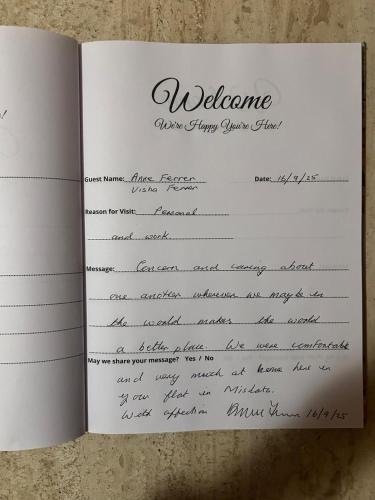 !
Welcome
We're Happy You're Here!
Guest Name: Anne Ferrer Date: 16/9/25
Visha Ferrer
Reason for Visit: Personal
and work.
Message: Concern and caring about
one another wherever we maybe in
the world makes the world
a better place. We were comfortable
May we share your message? Yes / No
and very much at home here in
your flat in Mislata.
With affection 16/9/25